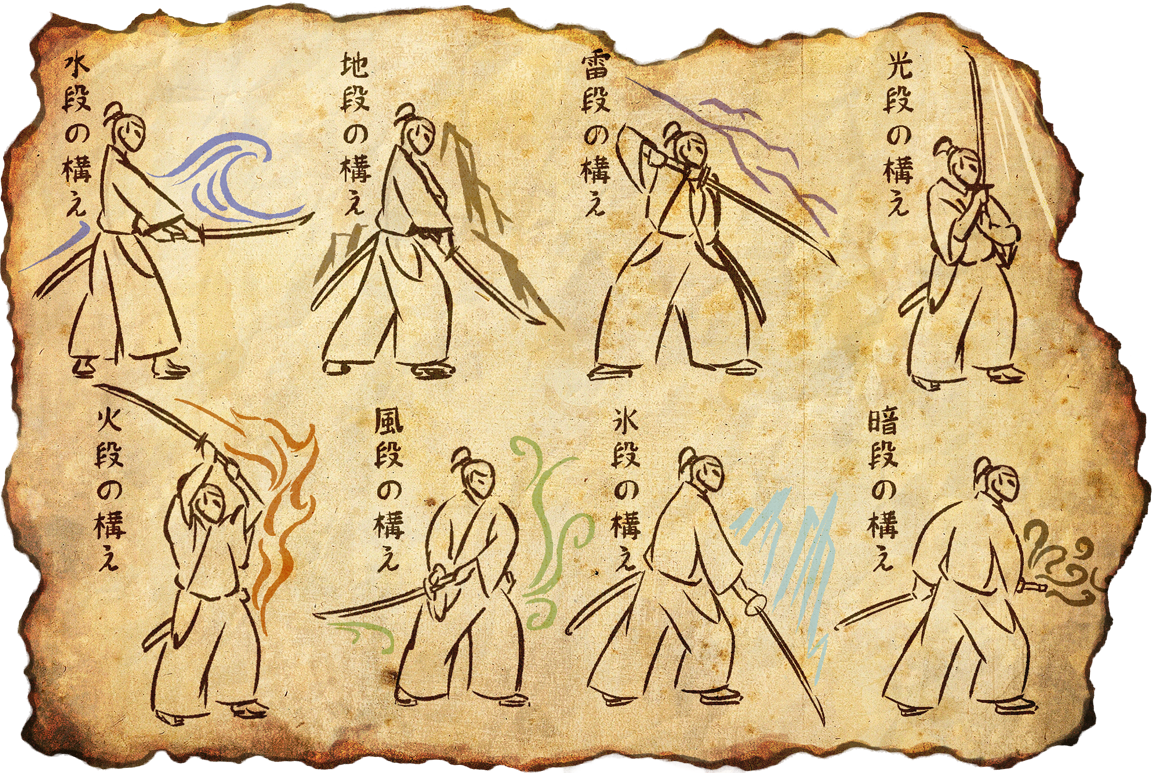 水段の構え
地段の構え
雷段の構え
光段の構え
火段の構え
風段の構え
氷段の構え
暗段の構え